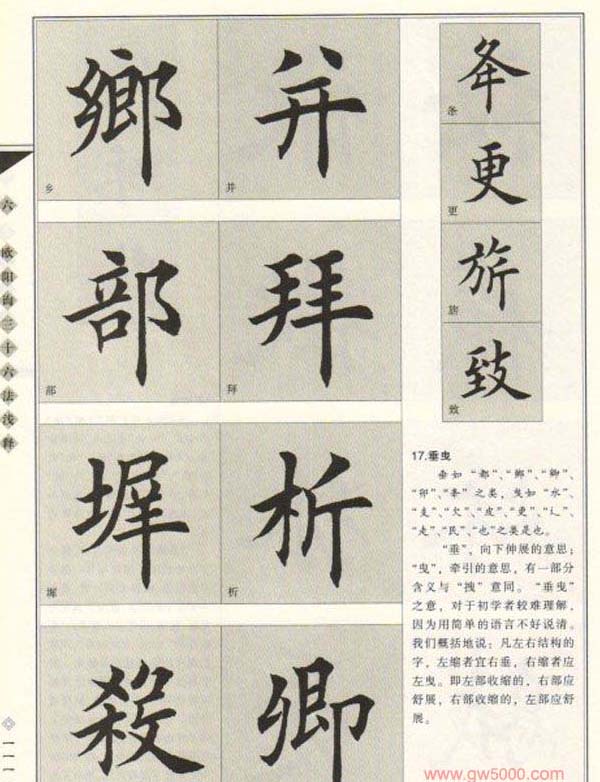 六 欧阳询三十六法浅释
一一一
鄉
乡
并
并
部
部
拜
拜
墀
墀
析
析
殺
卿
夅
条
更
更
旂
致
致
17.垂曳
垂如“都”、“鄉”、“卿”、
“卯”、“夅”之类，曳如“水”、
“支”、“欠”、“皮”、“更”、“辶”、
“走”、“民”、“也”之类是也。
“垂”，向下伸展的意思；
“曳”，牵引的意思，有一部分
含义与“拽”意同。“垂曳”
之意，对于初学者较难理解，
因为用简单的语言不好说清。
我们概括地说：凡左右结构的
字，左缩者宜右垂，右缩者应
左曳。即左部收缩的，右部应
舒展，右部收缩的，左部应舒
展。
www.gw5000.com